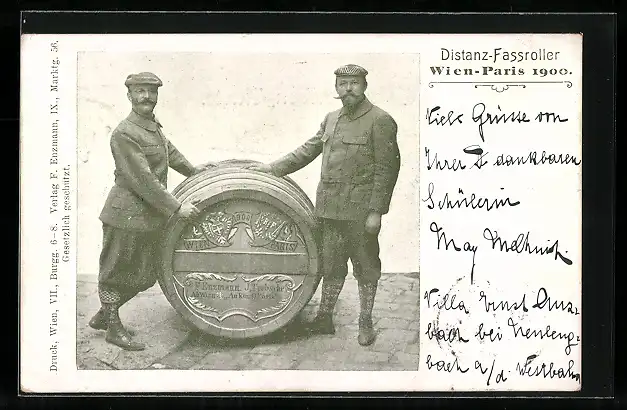 Distanz-Fassroller
Wien-Paris 1900.
Viele Grüsse von
Ihrer dankbaren
Schülerin
May
Villa Ernst Ans-
bach bei Neuleng-
bach a/d. Westbahn
WIEN 1900 PARIS
F. Enzmann. J.
Druck, Wien, VII., Burgg. 6-8. Verlag F. Enzmann, IX., Marktg. 56.
Gesetzlich geschützt.